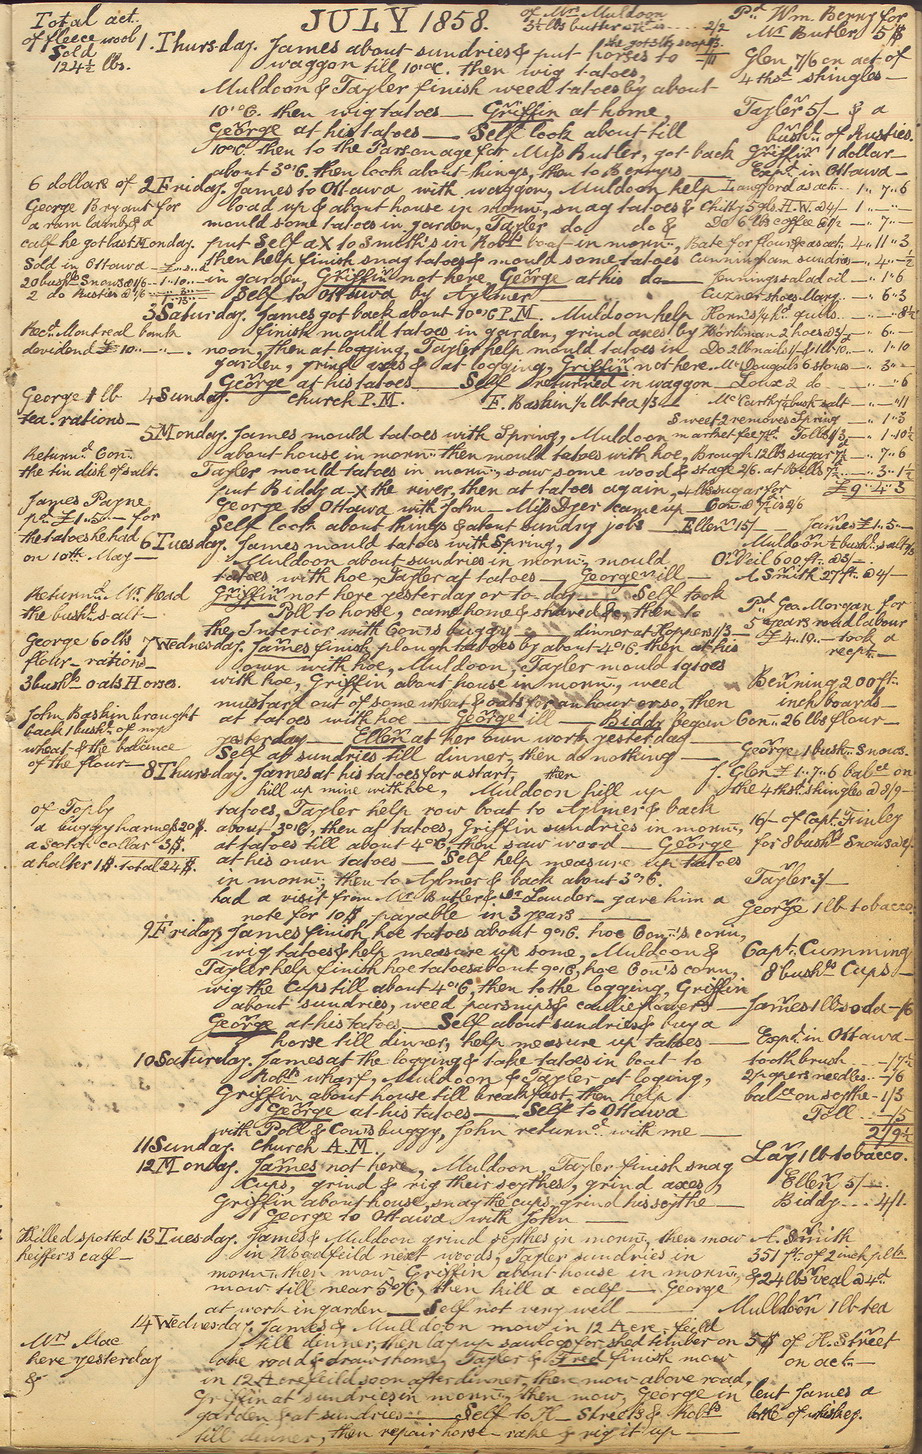 JULY 1858.
Total act.
of fleece wool
Sold
124½ lbs.
of Mrs Muldoon
Pd Wm. Berry for
Mr Butler 5$
1. Thursday. James about sundries & put horses to
waggon till 10 o'c. then wig tatoes,
Glen 7/6 on act of
4 thsd shingles
Muldoon & Tayler finish weed tatoes by about
10 o'C. then wig tatoes — Griffin at home
Tayler 5/- & a
George at his tatoes — Self look about till
bushl. of Rusties.
10 o'C then to the Parsonage for Miss Butler, got back
Griffin 1 dollar
about 3 o'C. then look about things, then to Berrys
Expt. in Ottawa
6 dollars of
George Bryant for
a ram lamb & a
calf he got last Monday.
Sold in Ottawa
20 bushls Snows @ 1/6 — 1..10..-
2 do Rusties @ 1/6
2 Friday. James to Ottawa with waggon, Muldoon help
load up & about house in mornn., snag tatoes &
mould some tatoes in garden, Tayler do do &
put Self aX to Smith's in Robts boat in mornn.,
then help finish snag tatoes & mould some tatoes
in garden, Griffin not here, George at his do
Self to Ottawa by Aylmer
Langford as act. 1..7..6
Do 6 lbs coffee
Bate for flour &c as act. 4..11..3
Cunningham sundries
Jennings salad oil 1..6
Cuzner shoes Mary 6..3
3 Saturday. James got back about 10 o'C P.M. Muldoon help
finish mould tatoes in garden, grind axes by
noon, then at logging, Tayler help mould tatoes in
garden, grind axes & at logging, Griffin not here.
George at his tatoes — Self returned in waggon
Recd. Montreal bank
devidend £10
Workman 2 hoes @ 3/- 6
Do 2 lb nails 1/- & 1 lb 10 1..10
McDougals 6 stones 3
Loux 2 do 6
George 1 lb
tea. rations
4 Sunday. Church P.M. F. Baskin ½ lb tea 1/3
McCarthy ½ bush. salt
Sweet 2 removes Spring 1..3
5 Monday. James mould tatoes with Spring, Muldoon
about house in mornn. then mould tatoes with hoe,
Tayler mould tatoes in mornn., saw some wood &
put Biddy a-X the river, then at tatoes again,
George to Ottawa with John — Miss Dyer came up
Self look about things & about sundry jobs — Ellen 15/-
market fee 7½d Tolls 1/3 1..10½
Brough 12 lbs sugar 7½d 7..6
stage 2/6. at Bells 7½ 3..1½
£9..4..3
4 lbs sugar for
James £1..5
Returnd. Conn.
the tin dish of salt.
James Payne
pd. £1..5..- for
the tatoes he had
on 10th May
6 Tuesday. James mould tatoes with Spring,
Muldoon about sundries in mornn., mould
tatoes with hoe, Tayler at tatoes — George ill
Griffin not here yesterday or to-day — Self took
Poll to horse, came home & shaved &c, then to
the Interior with Con's buggy — dinner at Hoppers 1/3
Muldoon ½ bushl. salt
O'Neil 600 ft. @ 5/-
A. Smith 27 ft. @ 4/-
Pd Geo. Morgan for
5 years road labour
£4..10..- took a
recpt.
Returnd. Mr. Read
the bushl. salt
George 60 lbs
flour — rations
3 bushls oats Horses.
7 Wednesday. James finish plough tatoes by about 4 o'C. then at his
own with hoe, Muldoon, Tayler mould tatoes
with hoe, Griffin about house in mornn., weed
mustard out of some wheat & oats for an hour or so, then
at tatoes with hoe — George ill — Biddy began
yesterday — Ellen at her own work yesterday
Self at sundries till dinner, then do nothing
Benning 200 ft.
inch boards
Con.. 26 lbs flour
George 1 bush. Snows.
John Baskin brought
back 1 bushl. of my
wheat & the balance
of the flour
8 Thursday. James at his tatoes for a start, then
hill up mine with hoe, Muldoon hill up
tatoes, Tayler help row boat to Aylmer & back
about 3 o'C, then at tatoes, Griffin sundries in mornn.,
at tatoes till about 4 o'C, then saw wood — George
at his own tatoes — Self help measure up tatoes
in mornn., then to Aylmer & back about 3 o'C.
had a visit from Mr Butler & Mr Lauder — gave him a
note for 10$, payable in 3 years
J. Glen £1..7..6 balce on
the 4 thsd. shingles @ 8/9
16/- of Capt. Finley
for 8 bushls Snows @ 2/-
Tayler 3/-
George 1 lb tobacco.
of Topby
a buggy harness 20$.
a Scotch collar 3$.
a halter 1$. total 24$.
9 Friday. James finish hoe tatoes about 9 o'C. hoe Conn's corn,
wig tatoes & help measure up some, Muldoon &
Tayler help finish hoe tatoes about 9 o'C, hoe Con's corn,
wig the Cups till about 4 o'C, then to the logging, Griffin
about sundries, weed parsnips & caulieflowers
George at his tatoes — Self about sundries & buy a
horse till dinner, help measure up tatoes
Capt. Cumming
8 bushls Cups
James 1 lb soda -/6
Expt. in Ottawa
10 Saturday. James at the logging & take tatoes in boat to
Robts wharf, Muldoon & Tayler at loging,
Griffin about house till breakfast, then help
George at his tatoes — Self to Ottawa
with Poll & Con's buggy, John returnd. with me
tooth brush -/7½
2 papers needles -/6
balce on scythe - 1/3
Toll -/5
2/9½
11 Sunday. Church A.M.
12 Monday. James not here, Muldoon, Tayler finish snag
Cups, grind & rig their scythes, grind axes,
Griffin about house, snag the cups, grind his scythe
George to Ottawa with John
Lay 1 lb tobacco.
Ellen 5/-
Biddy 4/1.
Killed spotted
heiffer's calf
13 Tuesday. James & Muldoon grind scythes in mornn., then mow
in Woodfeild next woods, Tayler sundries in
mornn., then mow, Griffin about house in mornn.,
mow till near 5 o'C, then kill a calf — George
at work in garden — Self not very well
A. Smith
351 ft. of 2 inch plk
& 24 lbs veal @ 4d
Mulldoon 1 lb tea
14 Wednesday. James & Mulldoon mow in 12 Acre-feild
till dinner, then lay up sawlogs for shed timber on
lake road & draw home, Tayler & Fred finish mow
in 12 Acre feild soon after dinner, then mow above road,
Griffin at sundries in mornn., then mow, George in
garden & at sundries — Self to H- Streets & Robts
till dinner, then repair horse-rake & rig it up
Mrs Mac
here yesterday
&
5$ of H. Street
on act.
lent James a
bottle of whiskey.